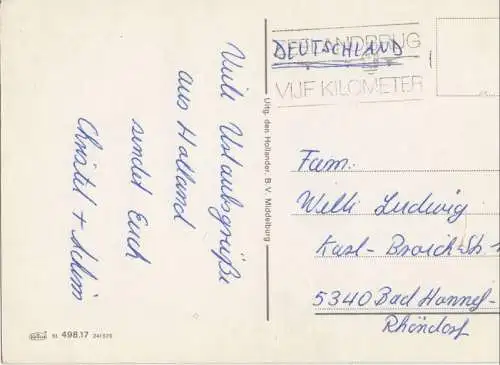 Viele Urlaubsgrüße
aus Holland
sendet Euch
Christel + Achim
Uitg. den Hollander, B.V. Middelburg
51 498.17
DEUTSCHLAND
VIJF KILOMETER
Fam.
Willi Ludwig
Karl-Broich-Str.
5340 Bad Honnef-
Rhöndorf